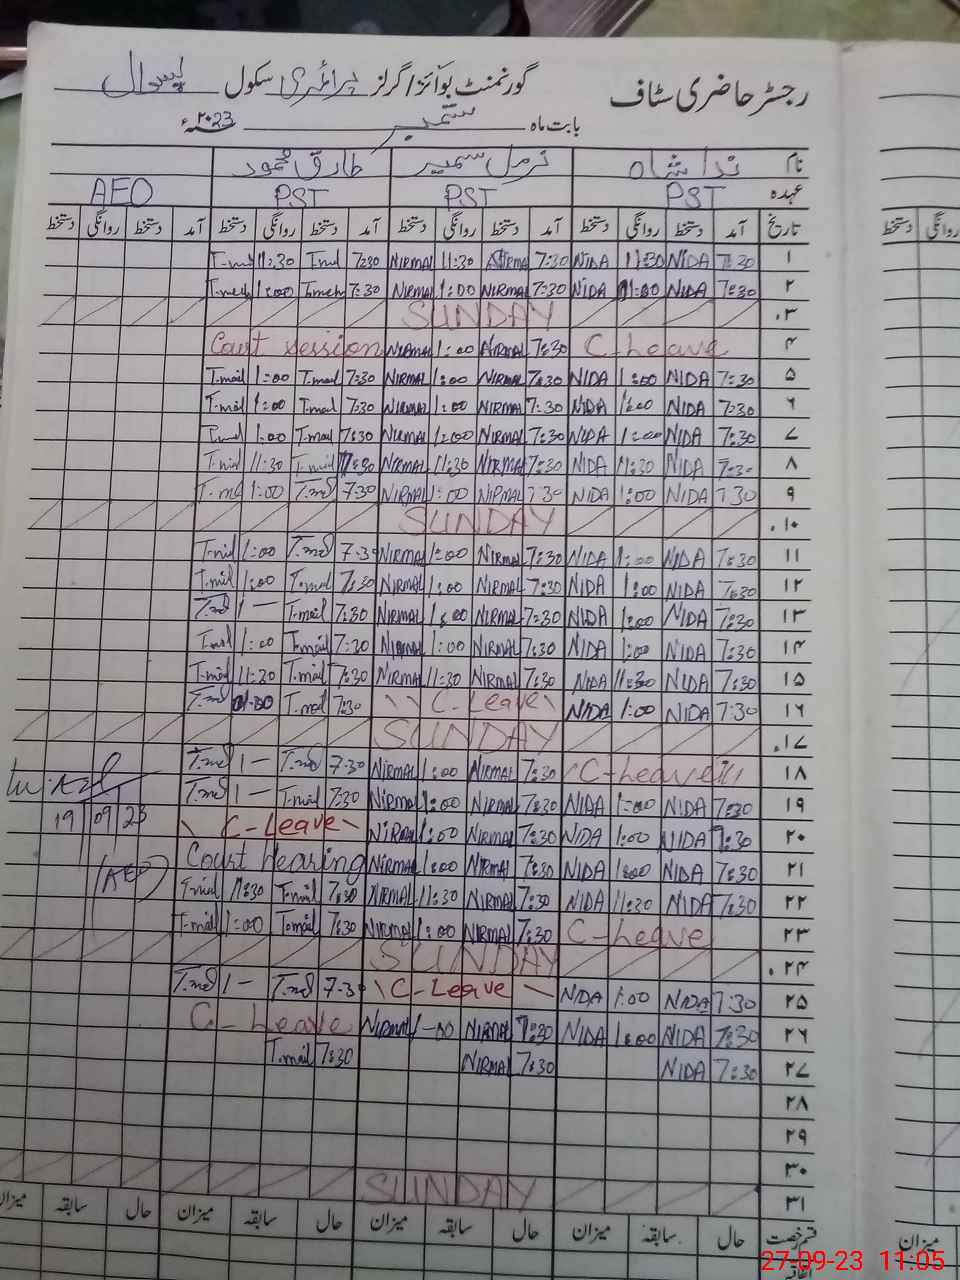 رجسٹر حاضری سٹاف گورنمنٹ بوائز/گرلز پرائمری سکول پسوال
بابت ماہ ستمبر 2023ء
نام ندا شاہ نرمل سمیر طارق محمود
عہدہ PST PST PST AEO
تاریخ آمد دستخط روانگی دستخط آمد دستخط روانگی دستخط آمد دستخط روانگی دستخط آمد دستخط روانگی دستخط
۱ 7:30 NIDA 11:30 NIDA 7:30 NIRMAL 11:30 NIRMAL 7:30 11:30
۲ 7:30 NIDA 1:00 NIDA 7:30 NIRMAL 1:00 NIRMAL 7:30 1:00
۳. SUNDAY
۴ C-Leave 7:30 NIRMAL 1:00 NIRMAL Court session
۵ 7:30 NIDA 1:00 NIDA 7:30 NIRMAL 1:00 NIRMAL 7:30 T.mail 1:00 T.mail
۶ 7:30 NIDA 1:00 NIDA 7:30 NIRMAL 1:00 NIRMAL 7:30 1:00
۷ 7:30 NIDA 1:00 NIDA 7:30 NIRMAL 1:00 NIRMAL 7:30 1:00
۸ 7:30 NIDA 11:30 NIDA 7:30 NIRMAL 11:30 NIRMAL 7:30 11:30
۹ 7:30 NIDA 1:00 NIDA 7:30 NIRMAL 1:00 NIRMAL 7:30 1:00
۱۰. SUNDAY
۱۱ 7:30 NIDA 1:00 NIDA 7:30 NIRMAL 1:00 NIRMAL 7:30 1:00
۱۲ 7:30 NIDA 1:00 NIDA 7:30 NIRMAL 1:00 NIRMAL 7:30 1:00
۱۳ 7:30 NIDA 1:00 NIDA 7:30 NIRMAL 1:00 NIRMAL 7:30 T.mail 1 —
۱۴ 7:30 NIDA 1:00 NIDA 7:30 NIRMAL 1:00 NIRMAL 7:20 T.mail 1:00
۱۵ 7:30 NIDA 11:30 NIDA 7:30 NIRMAL 11:30 NIRMAL 7:30 T.mail 11:20 T.mail
۱۶ 7:30 NIDA 1:00 NIDA C-Leave 7:30
۱۷. SUNDAY
۱۸ C-Leave 7:30 NIRMAL 1:00 NIRMAL 7:30 1 —
۱۹ 7:30 NIDA 1:00 NIDA 7:30 NIRMAL 1:00 NIRMAL 7:30 T.mail 1 —
19 09 23
۲۰ 7:30 NIDA 1:00 NIDA 7:30 NIRMAL 1:00 NIRMAL C-Leave
۲۱ 7:30 NIDA 1:00 NIDA 7:30 NIRMAL 1:00 NIRMAL Court Hearing
(AEO)
۲۲ 7:30 NIDA 11:30 NIDA 7:30 NIRMAL 11:30 NIRMAL 7:30 T.mail 11:30 T.mail
۲۳ C-Leave 7:30 NIRMAL 1:00 NIRMAL 7:30 T.mail 1:00 T.mail
۲۴. SUNDAY
۲۵ 7:30 NIDA 1:00 NIDA C-Leave 7:30 1 —
۲۶ 7:30 NIDA 1:00 NIDA 7:30 NIRMAL 1-00 NIRMAL C-Leave
۲۷ 7:30 NIDA 7:30 NIRMAL 7:30 T.mail
۲۸
۲۹
۳۰
۳۱ SUNDAY
قسم رخصت حال سابقہ میزان حال سابقہ میزان حال سابقہ میزان حال سابقہ میزان
روانگی دستخط
میزان
27-09-23 11:05